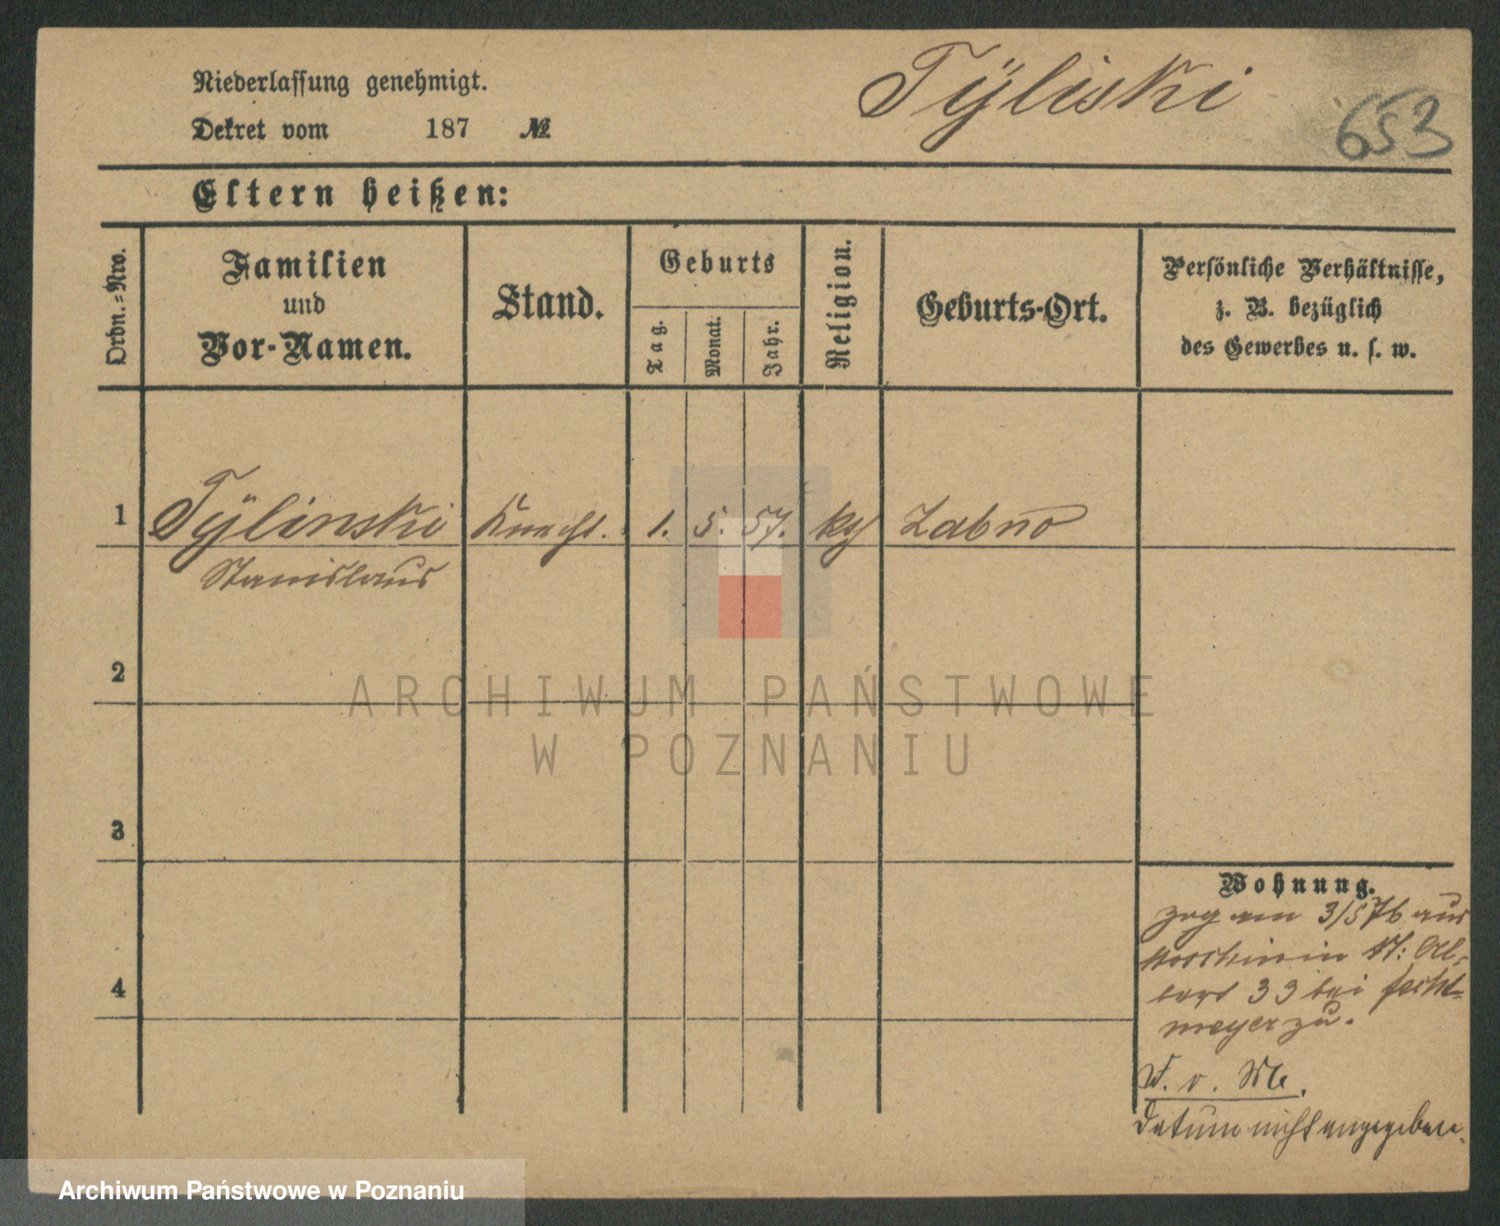 Niederlassung genehmigt.
Dekret vom 187 №
Tÿliski
653
Eltern heißen:
Ordn.-Nro.
Familien
und
Vor-Namen.
Stand.
Geburts
Tag.
Monat.
Jahr.
Religion.
Geburts-Ort.
Persönliche Verhältnisse,
z. B. bezüglich
des Gewerbes u. s. w.
1 Tÿlinski Knecht. 1. 5. 57. kg Zabno
Stanislaus
2
3
4
Wohnung.
zog am 3/5 76 aus
in St: Al-
bert 33 bei
meyer zu.
v.
Datum nicht angegeben.
ARCHIWUM PAŃSTWOWE
W POZNANIU
Archiwum Państwowe w Poznaniu